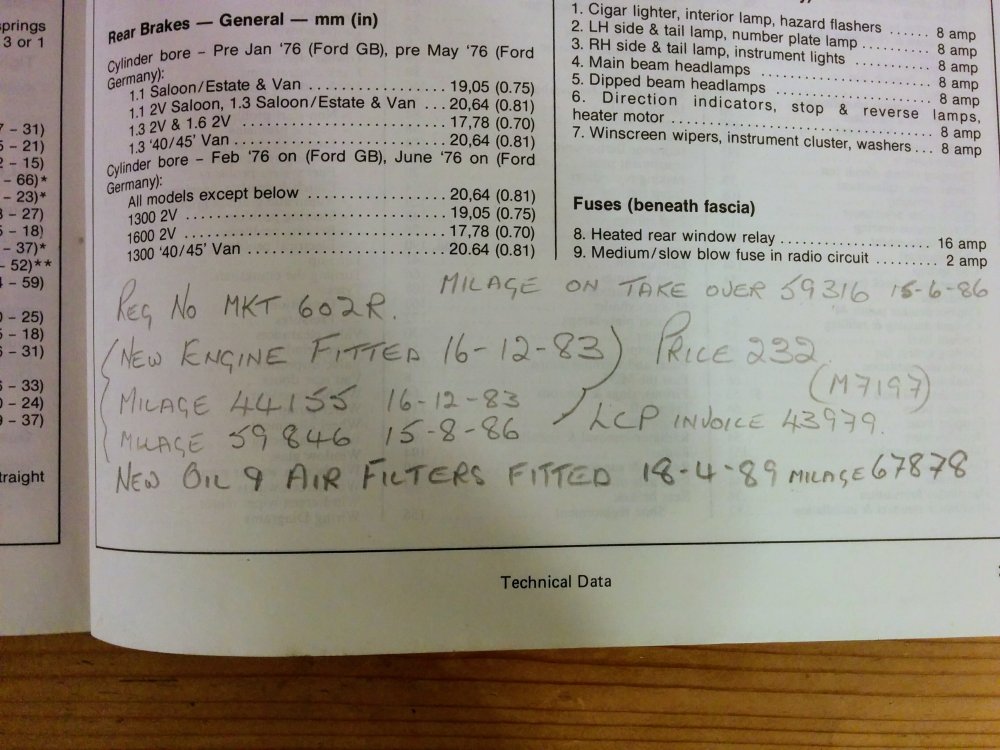 springs
3 or 1
7 – 31)
5 – 21)
2 – 15)
– 66)*
– 23)*
3 – 27)
5 – 18)
– 37)*
– 52)**
4 – 59)
0 – 25)
5 – 18)
6 – 31)
6 – 33)
0 – 24)
9 – 37)
traight
Rear Brakes — General — mm (in)
Cylinder bore – Pre Jan '76 (Ford GB), pre May '76 (Ford
Germany):
1.1 Saloon/Estate & Van .................... 19,05 (0.75)
1.1 2V Saloon, 1.3 Saloon/Estate & Van ... 20,64 (0.81)
1.3 2V & 1.6 2V ............................ 17,78 (0.70)
1.3 '40/45' Van ............................ 20,64 (0.81)
Cylinder bore – Feb '76 on (Ford GB), June '76 on (Ford
Germany):
All models except below .................... 20,64 (0.81)
1300 2V .................................... 19,05 (0.75)
1600 2V .................................... 17,78 (0.70)
1300 '40/45' Van ........................... 20.64 (0.81)
1. Cigar lighter, interior lamp, hazard flashers ...... 8 amp
2. LH side & tail lamp, number plate lamp ............. 8 amp
3. RH side & tail lamp, instrument lights ............. 8 amp
4. Main beam headlamps ................................ 8 amp
5. Dipped beam headlamps .............................. 8 amp
6. Direction indicators, stop & reverse lamps,
heater motor .......................................... 8 amp
7. Winscreen wipers, instrument cluster, washers ... 8 amp
Fuses (beneath fascia)
8. Heated rear window relay ..................... 16 amp
9. Medium/slow blow fuse in radio circuit ......... 2 amp
MILAGE ON TAKE OVER 59316 15-6-86
REG NO MKT 602R.
(NEW ENGINE FITTED 16-12-83) PRICE 232
(M7197)
MILAGE 44155 16-12-83
LCP INVOICE 43979.
MILAGE 59846 15-8-86
NEW OIL & AIR FILTERS FITTED 18-4-89 MILAGE 67878
Technical Data